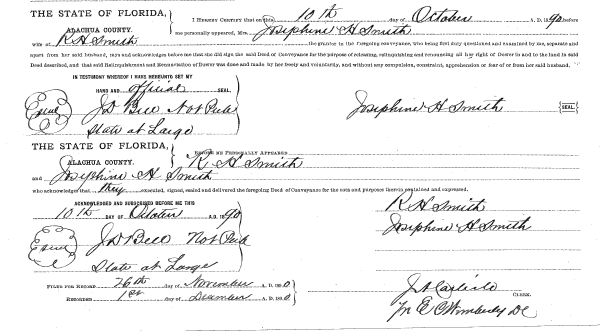 THE STATE OF FLORIDA,
ALACHUA COUNTY.
I HEREBY CERTIFY that on this 10th day of October A. D. 1890 before
me personally appeared, Mrs. Josephine H Smith
wife of R H Smith the grantor in the foregoing conveyance, who being first duly questioned and examined by me, separate and
apart from her said husband, says and acknowledges before me that she did sign the said Deed or Conveyance for the purpose of releasing, relinquishing and renouncing all her right of Dower in and to the land in said
Deed described, and that said Relinquishment and Renunciation of Dower was done and made by her freely and voluntary, and without any compulsion, constraint, apprehension or fear of or from her said husband.
IN TESTIMONY WHEREOF I HAVE HEREUNTO SET MY
HAND AND official SEAL,
J D Bell Not Pub
State at Large
Josephine H Smith {SEAL}
THE STATE OF FLORIDA,
ALACHUA COUNTY.
BEFORE ME PERSONALLY APPEARED
R H Smith
and Josephine H Smith
who acknowledges that they executed, signed, sealed and delivered the foregoing Deed of Conveyance for the uses and purposes therein contained and expressed.
ACKNOWLEDGED AND SUBSCRIBED BEFORE ME THIS
10th DAY OF October A. D. 1890
R H Smith
Josephine H Smith
J D Bell Not Pub
State at Large
FILED FOR RECORD 26th day of November A. D. 1890
RECORDED 1st day of December A. D. 1890
CLERK.
E Wimberly DC